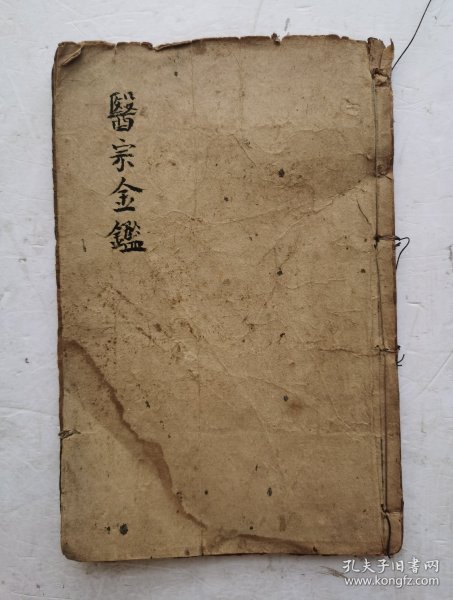 醫宗金鑑
孔夫子旧书网
www.kongfz.com